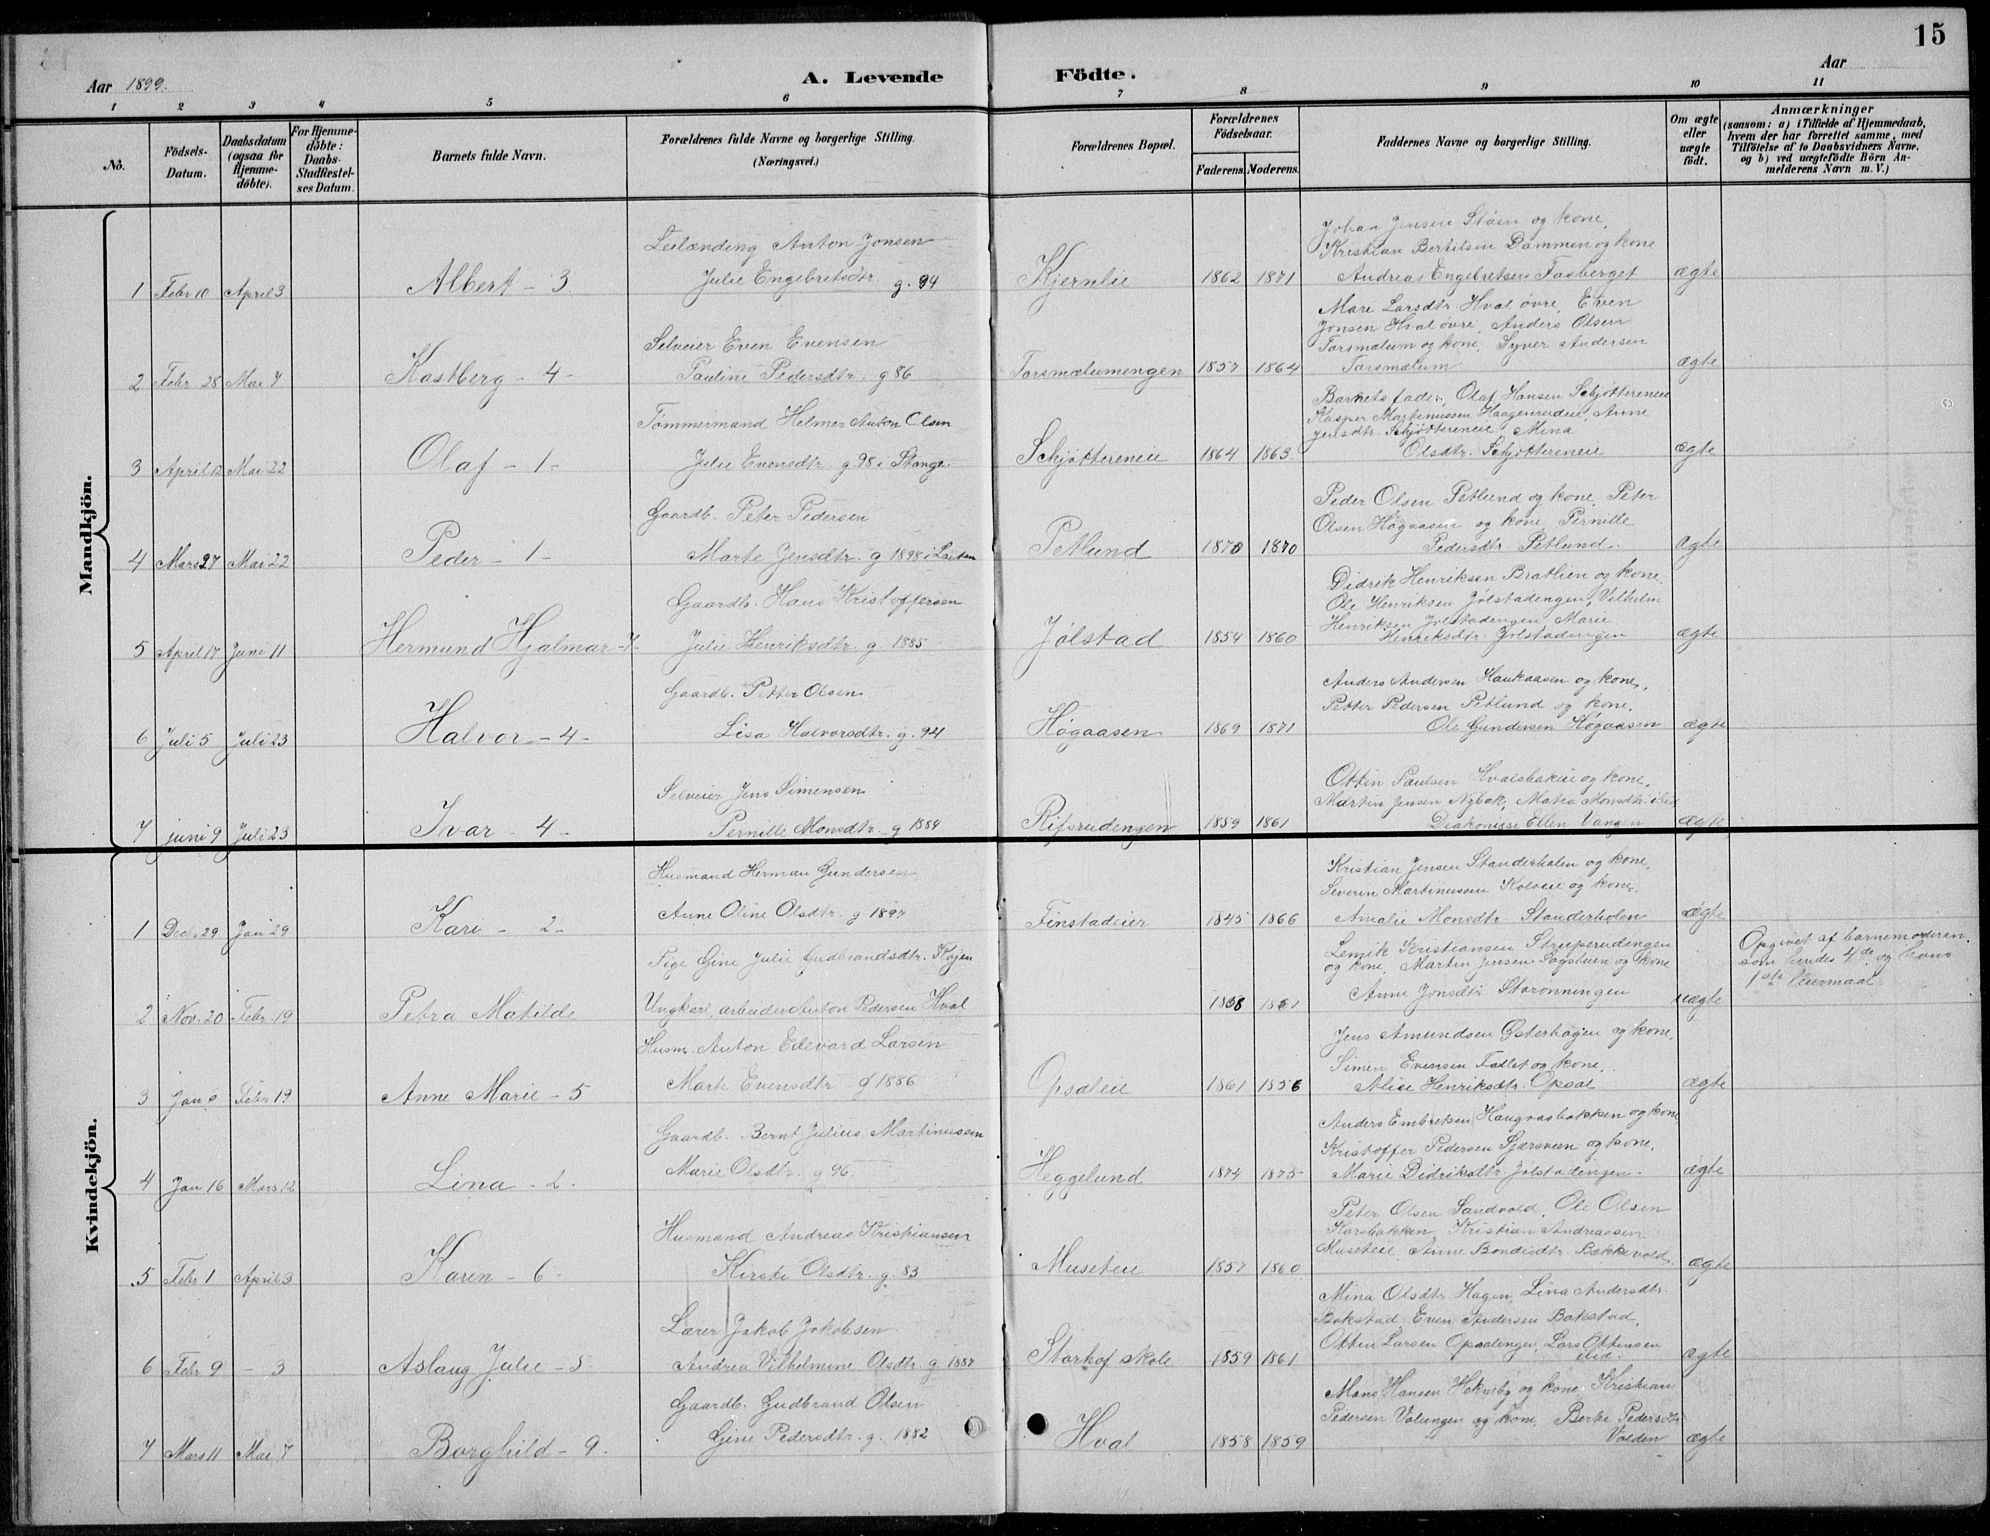 15
Aar 1899. A. Levende Födte. Aar
1 2 3 4 5 6 7 8 9 10 11
No. Födsels-Datum. Daabsdatum (ogsaa for Hjemme-döbte). For Hjemme-döbte: Daabs-Stadfæstel-ses Datum. Barnets fulde Navn. Forældrenes fulde Navne og borgerlige Stilling. (Næringsvei.) Forældrenes Bopæl. Forældrenes Födselsaar. Faderens. Moderens. Faddernes Navne og borgerlige Stilling. Om ægte eller uægte födt. Anmærkninger (saasom: a) i Tilfælde af Hjemmedaab, hvem der har forrettet samme, med Tilföielse af to Daabsvidners Navne, og b) ved uægtefödte Börn An-melderens Navn m. V.)
Mandkjön.
Johan Jensen Støen og kone,
Leilænding Anton Jonsen Kristian Bertelsen Dammen og kone
1 Febr 10 April 3 Albert - 3 Julie Engebretsdtr. g. 94 Kjernlie 1862 1871 Andreas Engebretsen Fasberget ægte
Mari Larsdtr. Hval øvre, Even
Jonsen Hval øvre, Anders Olsen
Selveier Even Evensen Torsmælum og kone, Syver Andersen
2 Febr 28 Mai 7 Kastberg - 4 - Pauline Pedersdtr. g 86 Torsmælumengen 1857 1864 Torsmælum ægte
Barnets fader, Olaf Hansen Schjøttereneie
Tømmermand Helmer Anton Olsen Kasper Martinussen Haagenrudeie, Anne
Jensdtr. Schjøttereneie Mina
3 April 12 Mai 22 Olaf - 1 - Julie Evensdtr. g 98 i Stange Schjøttereneie 1864 1863 Olsdtr. Schjøttereneie ægte
Peder Olsen Petlund og kone, Peter
Gaardb. Peter Pedersen Olsen Høgaasen og kone, Pernille
4 Mars 27 Mai 22 Peder - 1 - Marte Jensdtr. g 1898 i Løiten Petlund 1870 1870 Pedersdtr. Petlund. ægte
Didrik Henriksen Brathen og kone.
Gaardb. Hans Kristoffersen Ole Henriksen Jølstadengen, Vilhelm
Henriksen Jølstadengen Marie
5 April 17 Juni 11 Hermund Hjalmar - 7 - Julie Henriksdtr. g. 1885 Jølstad 1854 1860 Henriksdtr. Jølstadengen ægte
Anders Andersen Haukaasen og kone,
Gaardb. Petter Olsen Petter Pedersen Petlund og kone,
6 Juli 5 Juli 23 Halvor - 4 - Lisa Halvorsdtr. g. 94 Høgaasen 1869 1871 Ole Gundersen Høgaasen ægte
Ottin Paulsen Hvalsbakeie og kone,
Selveier Jens Simensen Martin Jensen Nybak, Matea Monsdtr. ibid
7 juni 9 Juli 23 Ivar - 4 - Pernille Monsdtr. g 1884 Rifsrudengen 1859 1861 Diakonisse Ellen Vangen ægte
Kvindekjön.
Kristian Jensen Standerholen og kone,
Husmand Herman Gundersen Severin Martinussen Kolveie og kone,
1 Dec. 29 Jan 29 Kari - 2 - Anne Oline Olsdtr. g 1897 Finstadeier 1845 1866 Amalie Monsdtr Standerholen ægte
Pige Gine Julie Gudbrandsdtr. Røjen Kristiansen Struperudengen Opgivet af barnemoderen
og kone, Martin Jensen Sogstuen og kone som hendes 4de og hans
2 Nov. 20 Febr. 19 Petra Matilde Ungkarl, arbeider Anton Pedersen Hval 1868 1861 Anne Jonsdtr Starønningen uægte 1ste leiermaal
Husm. Anton Edevard Larsen Jens Amundsen Østerhagen og kone,
Simen Evensen Fallet og kone,
3 Jan 6 Febr 19 Anne Marie - 5 Marte Evensdtr g 1886 Opsaleie 1861 1856 Alise Henriksdtr. Opsal ægte
Gaardb. Bernt Julius Martinussen Anders Embretsen Haugvasbakken og kone
Kristoffer Pedersen Sjørsveen og kone,
4 Jan 16 Mars 12 Lina - 2 - Marie Olsdtr. g 96. Heggelund 1874 1875 Marie Didriksdtr Jølstadengen. ægte
Peter Olsen Sandvold, Ole Olsen
Husmand Andreas Kristiansen Korsbakken, Kristian Andreasen
5 Febr 1 April 3 Karen - 6 - Kirsti Olsdtr. g. 83 Museteie 1857 1860 Museteie Anne Bondisdtr. Bakkevold ægte
Mina Olsdtr. Hagen, Lina Andersdtr.
Lærer Jakob Jakobsen Bakstad, Even Andersen Bakstad,
6 Febr 9 - 3 Aslaug Julie - 5 Andrea Vilhelmine Olsdtr g 1887 Starhof skole 1859 1861 Otten Larsen Opsalengen, Lars Ottensen ibid. ægte
Gaardb. Gudbrand Olsen Mons Hansen Hekneby og kone, Kristian
Pedersen Volungen og kone, Berte Pedersdtr
7 Mars 11 Mai 7 Borghild - 9 - Gine Pedersdtr. g. 1882 Hval 1858 1859 Volden ægte